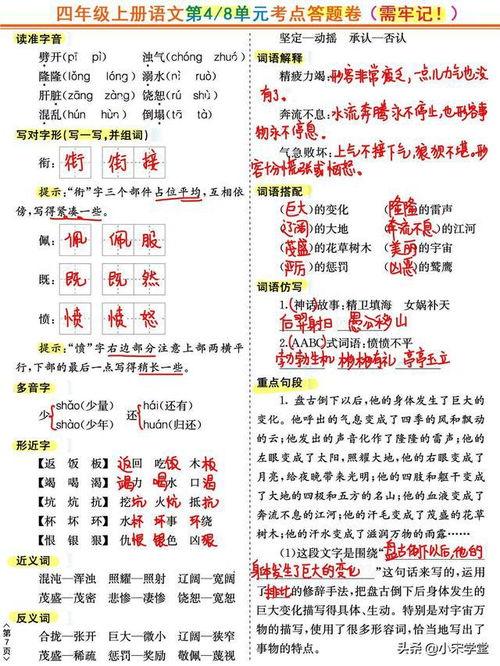 四年级上册语文第4/8单元考点答题卷（需牢记！）
读准字音
劈开(pī pǐ) 浊气(zhóu zhuó)
隆隆(lōng lóng) 溺水(nì ruò)
肝脏(zāng zàng) 饶恕(rú shù)
混乱(hún hùn) 倒塌(tā tà)
写对字形(写一写,并组词)
衔: 衔 衔接
提示:“衔”字三个部件占位平均,互相依
傍,写得紧凑一些。
佩: 佩 佩服
既: 既 既然
愤: 愤 愤怒
提示:“愤”字右边部分注意上部两横平
行,下部的最后一点写得稍长一些。
多音字
少 shǎo(少量) shào(少年) 还 hái(还有) huán(归还)
形近字
【返 饭 板】返回 吃饭 木板
【竭 喝 渴】竭力 喝水 口渴
【坑 炕 抗】挖坑 火炕 抵抗
【杯 坏 环】水杯 坏事 环绕
【恨 银 狠】仇恨 银色 凶狠
近义词
混沌—浑浊 照耀—照射 辽阔—宽阔
茂盛—茂密 悲惨—凄惨 饶恕—宽恕
反义词
合拢—张开 巨大—微小 辽阔—狭窄
茂盛—稀疏 惩罚—奖励 敬佩—蔑视
第7页
坚定—动摇 承认—否认
词语解释
精疲力竭:形容非常疲乏,一点儿力气也没
有了。
奔流不息:水流奔腾永不停止,也形容事
物永不停息。
气急败坏:上气不接下气,狼狈不堪。形
容十分慌张或恼怒。
词语搭配
(巨大)的变化 (隆隆)的雷声
(辽阔)的大地 (奔流不息)的江河
(茂盛)的花草树木 (美丽)的宇宙
(严厉)的惩罚 (凶恶)的鹫鹰
词语仿写
1.(神话)故事:精卫填海 女娲补天
后羿射日 愚公移山
2.(AABC)式词语:愤愤不平
勃勃生机 彬彬有礼 亭亭玉立
重点句段
1. 盘古倒下以后,他的身体发生了巨大的
变化。他呼出的气息变成了四季的风和飘动
的云;他发出的声音化作了隆隆的雷声;他的
左眼变成了太阳,照耀大地,他的右眼变成了
月亮,给夜晚带来光明;他的四肢和躯干变成
了大地的四极和五方的名山;他的血液变成了
奔流不息的江河;他的汗毛变成了茂盛的花草
树木;他的汗水变成了滋润万物的雨露……
(1)这段文字是围绕“盘古倒下以后,他的
身体发生了巨大的变化”这句话来写的,运用
了排比的修辞手法,把盘古倒下后身体发生的
巨大变化描写得具体、生动。特别是对宇宙万
物的描写,使用了很多形容词,恰当地写出了
事物的特点。
头条 @小宋学堂